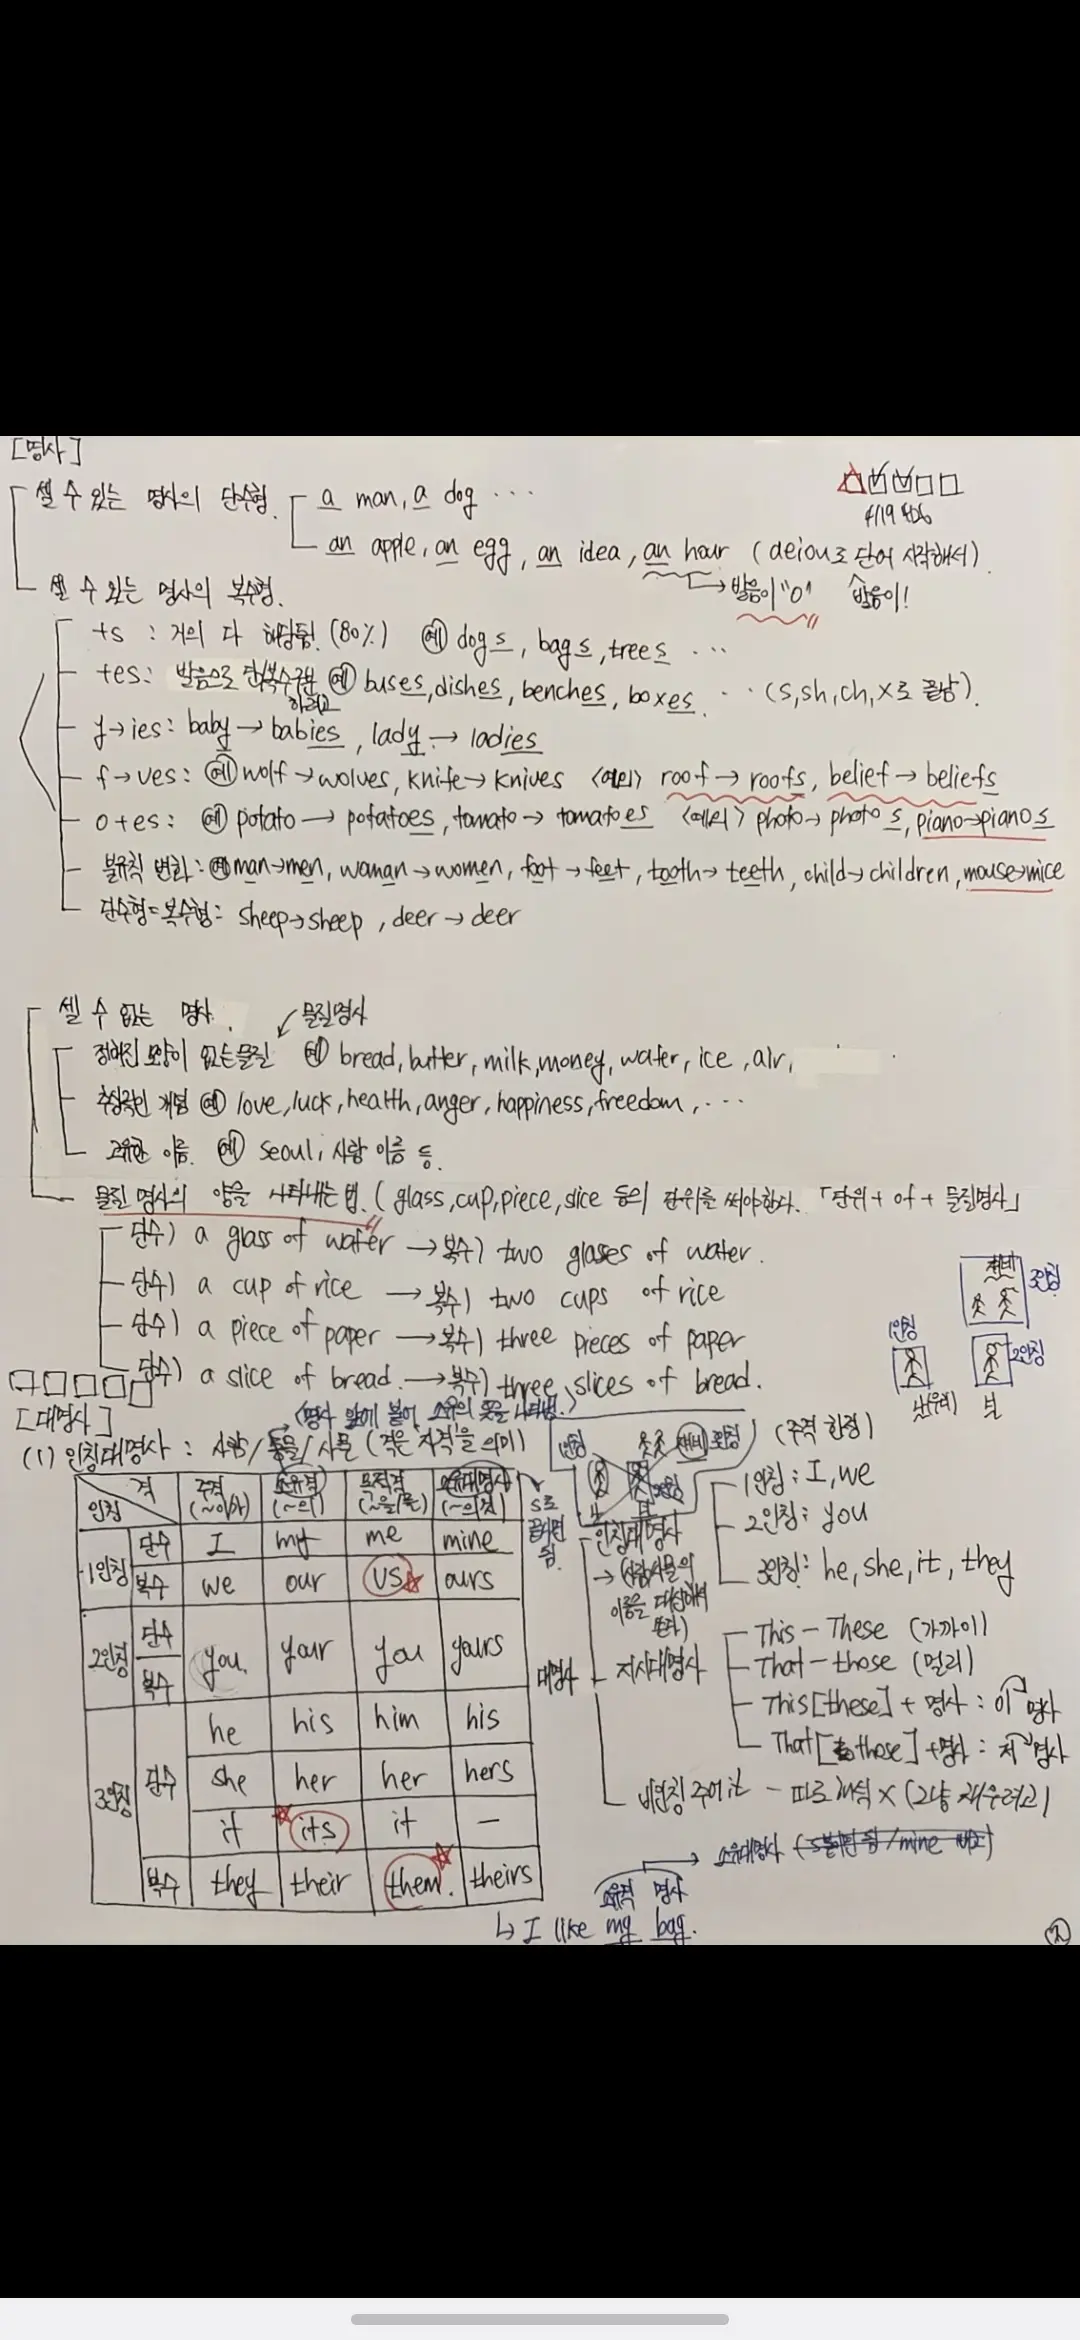 [명사]
셀 수 있는 명사의 단수형. a man, a dog ...
4/19 4/26
an apple, an egg, an idea, an hour (aeiou로 단어 시작해서)
발음이 "O" 발음이!
셀 수 있는 명사의 복수형.
+s : 거의 다 해당됨. (80%) 예 dogs, bags, trees ...
+es: 발음으로 단/복수구분 하려고 예 buses, dishes, benches, boxes ... (s, sh, ch, x로 끝남).
y→ies: baby → babies, lady → ladies
f→ves: 예 wolf → wolves, knife → knives <예외> roof → roofs, belief → beliefs
o+es: 예 potato → potatoes, tomato → tomatoes <예외> photo → photos, piano→pianos
불규칙 변화: 예 man→men, woman→women, foot→feet, tooth→teeth, child→children, mouse→mice
단수형=복수형: sheep→sheep, deer→deer
셀 수 없는 명사.
물질명사
정해진 모양이 없는 물질 예 bread, butter, milk, money, water, ice, air,
추상적인 개념 예 love, luck, health, anger, happiness, freedom, ...
고유한 이름. 예 seoul, 사람 이름 등.
물질 명사의 양을 나타내는 법. (glass, cup, piece, slice 등의 단위를 써야한다. 「단위 + of + 물질명사」
단수) a glass of water → 복수) two glases of water.
단수) a cup of rice → 복수) two cups of rice
단수) a piece of paper → 복수) three pieces of paper
단수) a slice of bread. → 복수) three slices of bread.
1인칭 나(우리)
2인칭 너
3인칭
[대명사]
(명사 앞에 붙어 소유의 뜻을 나타냄.)
(1) 인칭대명사 : 사람/동물/사물 (격은 '자격'을 의미)
격 인칭 주격 (~이/가) 소유격 (~의) 목적격 (~을/를) 소유대명사 (~의 것)
1인칭 단수 I my me mine
복수 we our us ours
2인칭 단수 복수 you your you yours
3인칭 단수 he his him his
she her her hers
it its it —
복수 they their them. theirs
s로 끝나면 됨.
대명사
인칭대명사
(주격 한정)
1인칭: I, we
2인칭: you
3인칭: he, she, it, they
지시대명사
This - These (가까이)
That - those (멀리)
This[these] + 명사 : 이 명사
That[those] + 명사 : 저 명사
비인칭 주어 it - 따로 해석 X (그냥 채우려고)
소유대명사 (s붙이면 됨/mine 빼고)
소유격 명사
I like my bag.
2